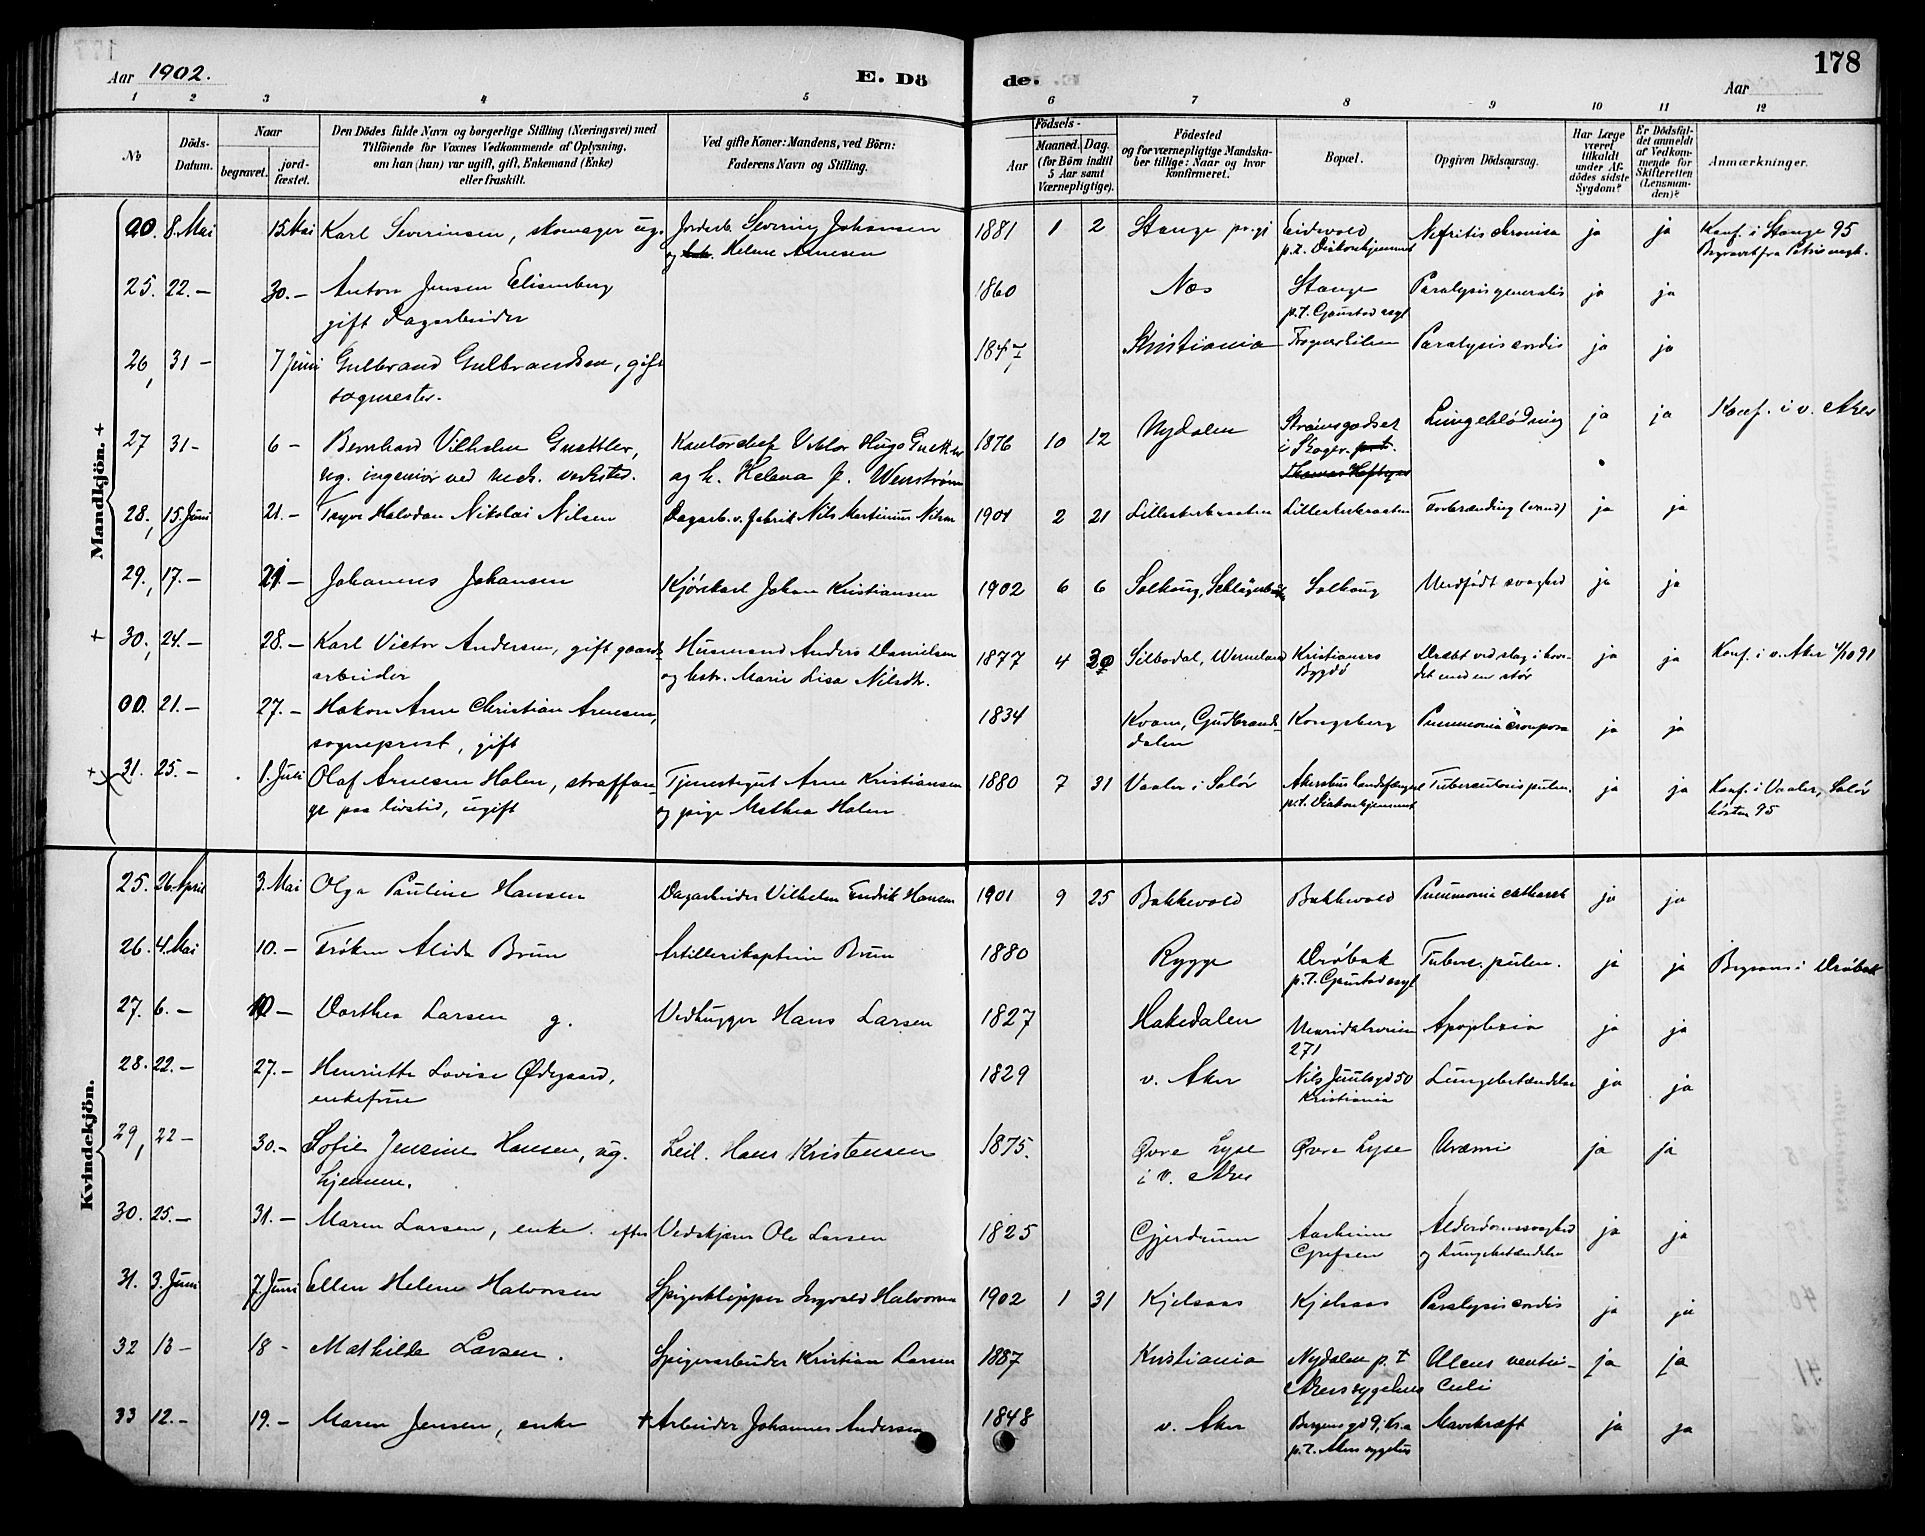 178
Aar 1902. E. Döde. Aar
1 2 3 4 5 6 7 8 9 10 11 12
No Döds-Datum. Naar begravet. jordfæstet. Den Dödes fulde Navn og borgerlige Stilling (Næringsvei) med Tilföiende for Voxnes Vedkommende af Oplysning, om han (hun) var ugift, gift, Enkemand (Enke) eller fraskilt. Ved gifte Koner: Mandens, ved Börn: Faderens Navn og Stilling. Födsels- Aar Maaned. Dag. (for Börn indtil 5 Aar samt Værnepligtige). Födested og for værnepligtige Mandskaber tillige: Naar og hvor konfirmeret. Bopæl. Opgiven Dödsaarsag. Har Læge været tilkaldt under Afdödes sidste Sygdom? Er Dödsfaldet anmeldt af Vedkommende for Skifteretten (Lensmanden)? Anmærkninger.
Mandkjön. +
00. 8. Mai 15 Mai Karl Severinsen, skomager ug. Severin Johansen 1881 1 2 Stange prgj Eidsvold Nefritis chronica ja ja Konf. i Stange 95
og Helene Arnesen p.t. Diakonhjemmet Begravet fra
25. 22.– 30.– Anton Jensen Elisenberg 1860 Næs Stange Paralysis generalis ja ja
gift Dagarbeider p.t. Gaustad asyl
26, 31 – 7 Juni Gulbrand Gulbrandsen, gift 1847 Kristiania Paralysis cordis ja ja
sagmester.
27 31– 6 – Bernhard Vilhelm Kontorchef Viktor Hugo 1876 10 12 Nydalen Strømsgodset Lungeblødning ja ja Konf. i v. Aker
ug. ingeniør ved mek. verksted. og h. Helena J. Wenstrøm i Skoger
28, 15. Juni 21.– Trygve Halvdan Nikolai Nilsen Dagarb. v. fabrik Nils Martinius Nilsen 1901 2 21 Lillestekraaten Lillestekraaten Forbrænding (vand) ja ja
29, 17.– 21 – Johannes Johansen Kjørekarl Johan Kristiansen 1902 6 6 Solhaug, Solhaug Medfødt svaghed ja ja
+ 30, 24.– 28.– Karl Victor Andersen, gift gaards- Husmand Anders Danielsen 1877 4 30 Silbodal, Wermland Kristiansro Dræbt ved slag i hove- ja ja Konf. i v. Aker 91
arbeider og hstr. Marie Lisa Nilsdtr. Bygdø det med en stør
00. 21.– 27.– Hakon Arne Christian Arnesen, 1834 Kvam, Gudbrands- Kongsberg Pneumonia crouposa ja ja
sogneprest, gift dalen
31. 25.– 1. Juli Olaf Arnesen Holen, straffan- Tjenestegut Arne Kristiansen 1880 7 31 Vaaler i Solør Akershus landsfængsel Tuberculosis pulm. ja ja Konf. i Vaaler, Solør
ge paa livstid, ugift og pige Mathea Holen p.t. Diakonhjemmet høsten 95
Kvindekjön.
25. 26. April 3. Mai Olga Pauline Hansen Dagarbeider Vilhelm Fredrik Hansen 1901 9 25 Bakkevold Bakkevold Pneumonia catharrh ja ja
26. 4. Mai 10.– Frøken Alida Brun Artillerikaptein Brun 1880 Rygge Drøbak Tuberc. pulm. ja ja Begraves i Drøbak
p.t. Gaustad asyl
27. 6. – 10 – Dorthea Larsen g. Vedhugger Hans Larsen 1827 Hakedalen Maridalsveien Apoplexia ja ja
271
28. 22.– 27.– Henriette Lovise Ødegaard, 1829 v. Aker Nils Juulsgd 50 Lungebetændelse ja ja
enkefrue Kristiania
29, 22 – 30.– Sofie Jensine Hansen, ug. Leil. Hans Kristensen 1875. Øvre Lyse Øvre Lyse Uræmi ja ja
hjemme. i V. Aker
30. 25.– 31.– Maren Larsen, enke efter Vedskjærer Ole Larsen 1825 Gjerdrum Aasheim Alderdomssvaghed ja ja
Grefsen og Lungebetændelse
31. 3. Juni 7. Juni Ellen Helene Halvorsen Spigerklipper Ingvald Halvorsen 1902 1 31 Kjelsaas Kjelsaas Paralysis cordis ja ja
32 13 – 18 – Mathilde Larsen. Spigerarbeider Kristian Larsen 1887 Kristiania Nydalen p.t Ulcus ventri- ja ja
Akers sygehus culi
33 12.– 19.– Maren Jensen, enke + Arbeider Johannes Andersen 1848 v. Aker Bergensgd 9, Kr.a Mavekræft ja ja
p.t. Akers sygehus